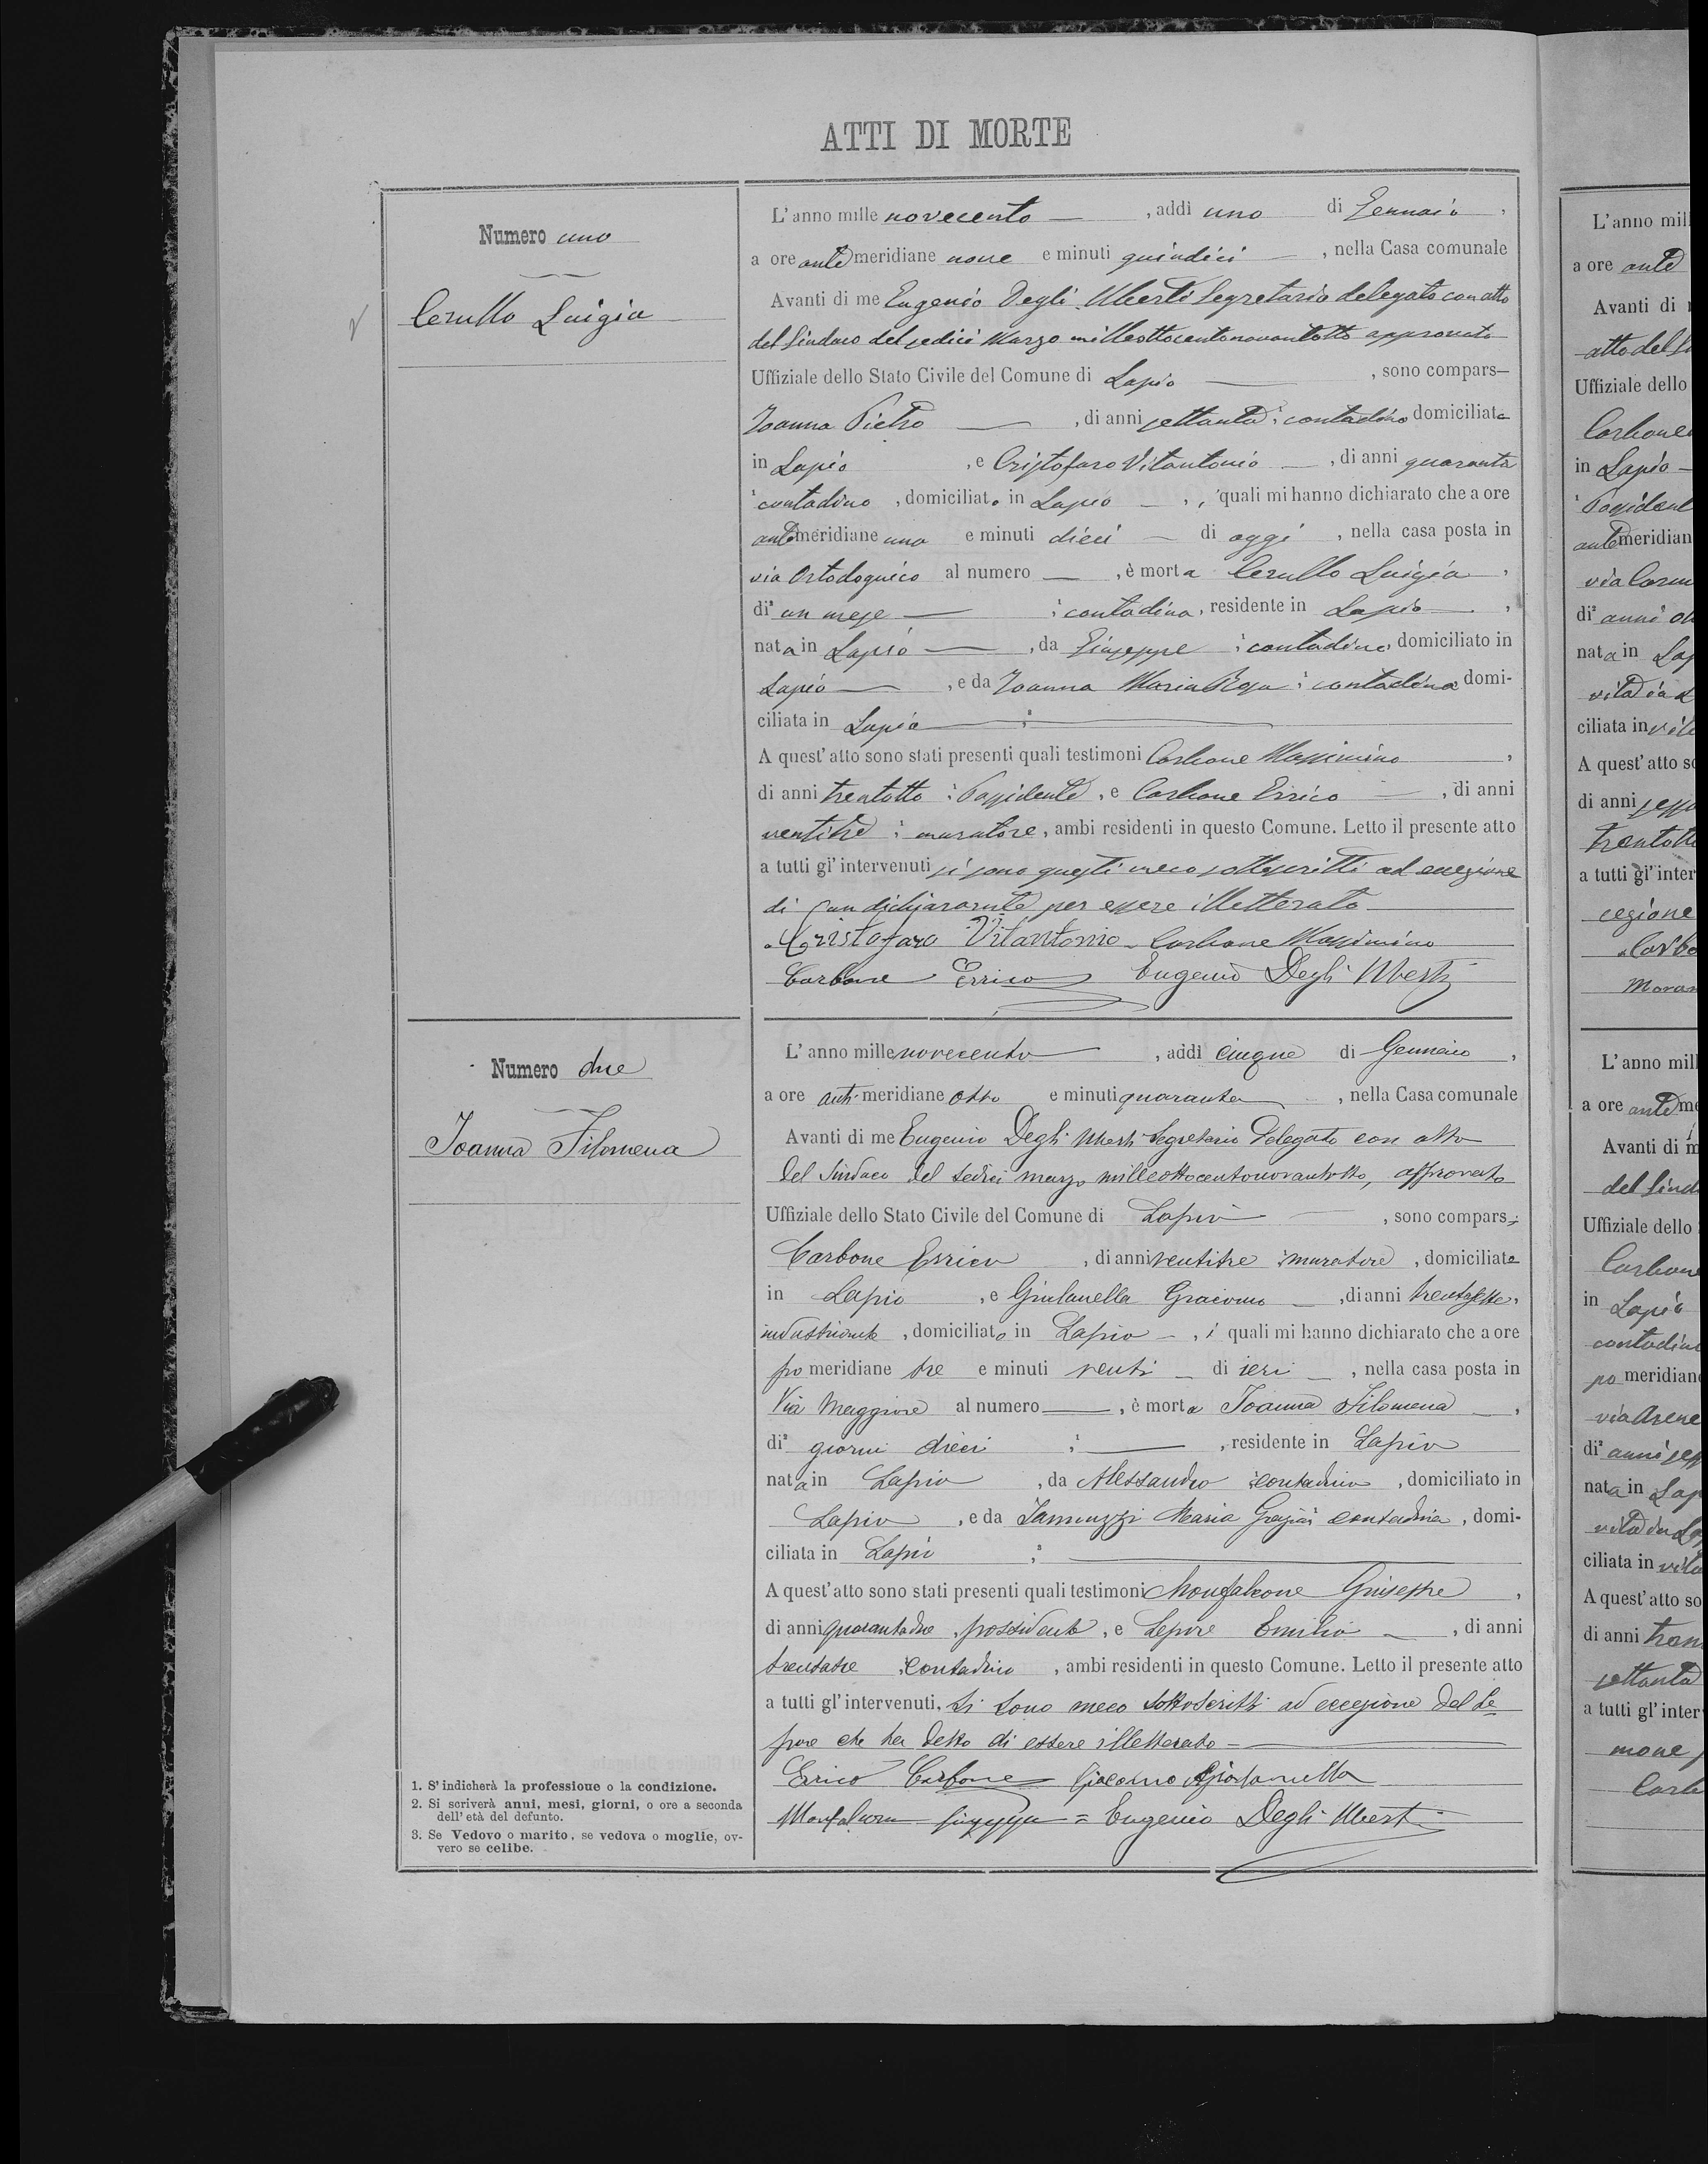 ATTI DI MORTE
Numero uno
Cerullo Luigia
L'anno mille novecento — , addì uno di Gennaio ,
a ore ante meridiane nove e minuti quindici — , nella Casa comunale
Avanti di me Eugenio Degli Uberti Segretario delegato con atto
del Sindaco del sedici Marzo milleottocentonovantotto approvato
Uffiziale dello Stato Civile del Comune di Lapio — , sono compars—
Ioanna Pietro — , di anni settanta, contadino domiciliato
in Lapio , e Cristofaro Vitantonio — , di anni quaranta
contadino , domiciliato in Lapio — , i quali mi hanno dichiarato che a ore
ante meridiane una e minuti dieci — di oggi , nella casa posta in
via Ortodoguico al numero — , è morta Cerullo Luigia ,
di² un mese — , contadina, residente in Lapio — ,
nata in Lapio — , da Giuseppe , contadino, domiciliato in
Lapio — , e da Ioanna Maria Rosa , contadina domi-
ciliata in Lapio — ³ —
A quest'atto sono stati presenti quali testimoni Carbone Massimino ,
di anni trentotto , Possidente , e Carbone Errico — , di anni
ventitre , muratore , ambi residenti in questo Comune. Letto il presente atto
a tutti gl'intervenuti si sono questi meco sottoscritti ad eccezione
di un dichiarante per essere illetterato
Cristofaro Vitantonio – Carbone Massimino
Carbone Errico Eugenio Degli Uberti
Numero due
Ioanna Filomena
L'anno mille novecento — , addì cinque di Gennaio ,
a ore anti meridiane otto e minuti quaranta , nella Casa comunale
Avanti di me Eugenio Degli Uberti Segretario Delegato con atto
del Sindaco del sedici marzo milleottocentonovantotto, approvato
Uffiziale dello Stato Civile del Comune di Lapio — , sono comparsi
Carbone Errico , di anni ventitre , muratore , domiciliato
in Lapio , e Giulanella Giacomo — , di anni trentasette,
industriante , domiciliato in Lapio — , i quali mi hanno dichiarato che a ore
po meridiane tre e minuti venti — di ieri — , nella casa posta in
Via Maggiore al numero — , è morta Ioanna Filomena — ,
di² giorni dieci , — , residente in Lapio
nata in Lapio , da Alessandro contadino , domiciliato in
Lapio , e da Iannuzzi Maria Grazia contadina , domi-
ciliata in Lapio ³ —
A quest'atto sono stati presenti quali testimoni Monfalcone Giuseppe ,
di anni quarantadue , possidente , e Lepore Emilio — , di anni
trentatre , contadino , ambi residenti in questo Comune. Letto il presente atto
a tutti gl'intervenuti, si sono meco sottoscritti ad eccezione del Le
pore che ha detto di essere illetterato —
Errico Carbone Giacomo
Monfalcone Giuseppe = Eugenio Degli Uberti
1. S'indicherà la professione o la condizione.
2. Si scriverà anni, mesi, giorni, o ore a seconda
dell'età del defunto.
3. Se Vedovo o marito, se vedova o moglie, ov-
vero se celibe.
L'anno mill
a ore ante
Avanti di
atto del Si
Uffiziale dello
Carbone
in Lapio —
Possident
ante meridian
via Carm
di² anni ot
nata in Lap
vita in L
ciliata in vit
A quest'atto so
di anni sess
trentotto
a tutti gl'inter
cezione
Carbo
Moran
L'anno mill
a ore ante me
Avanti di m
del Sind
Uffiziale dello
Carbone
in Lapio
contadin
po meridian
via Arene
di² anni set
nata in Lap
vita in La
ciliata in vita
A quest'atto so
di anni tren
settanta
a tutti gl'inter
mone
Carb